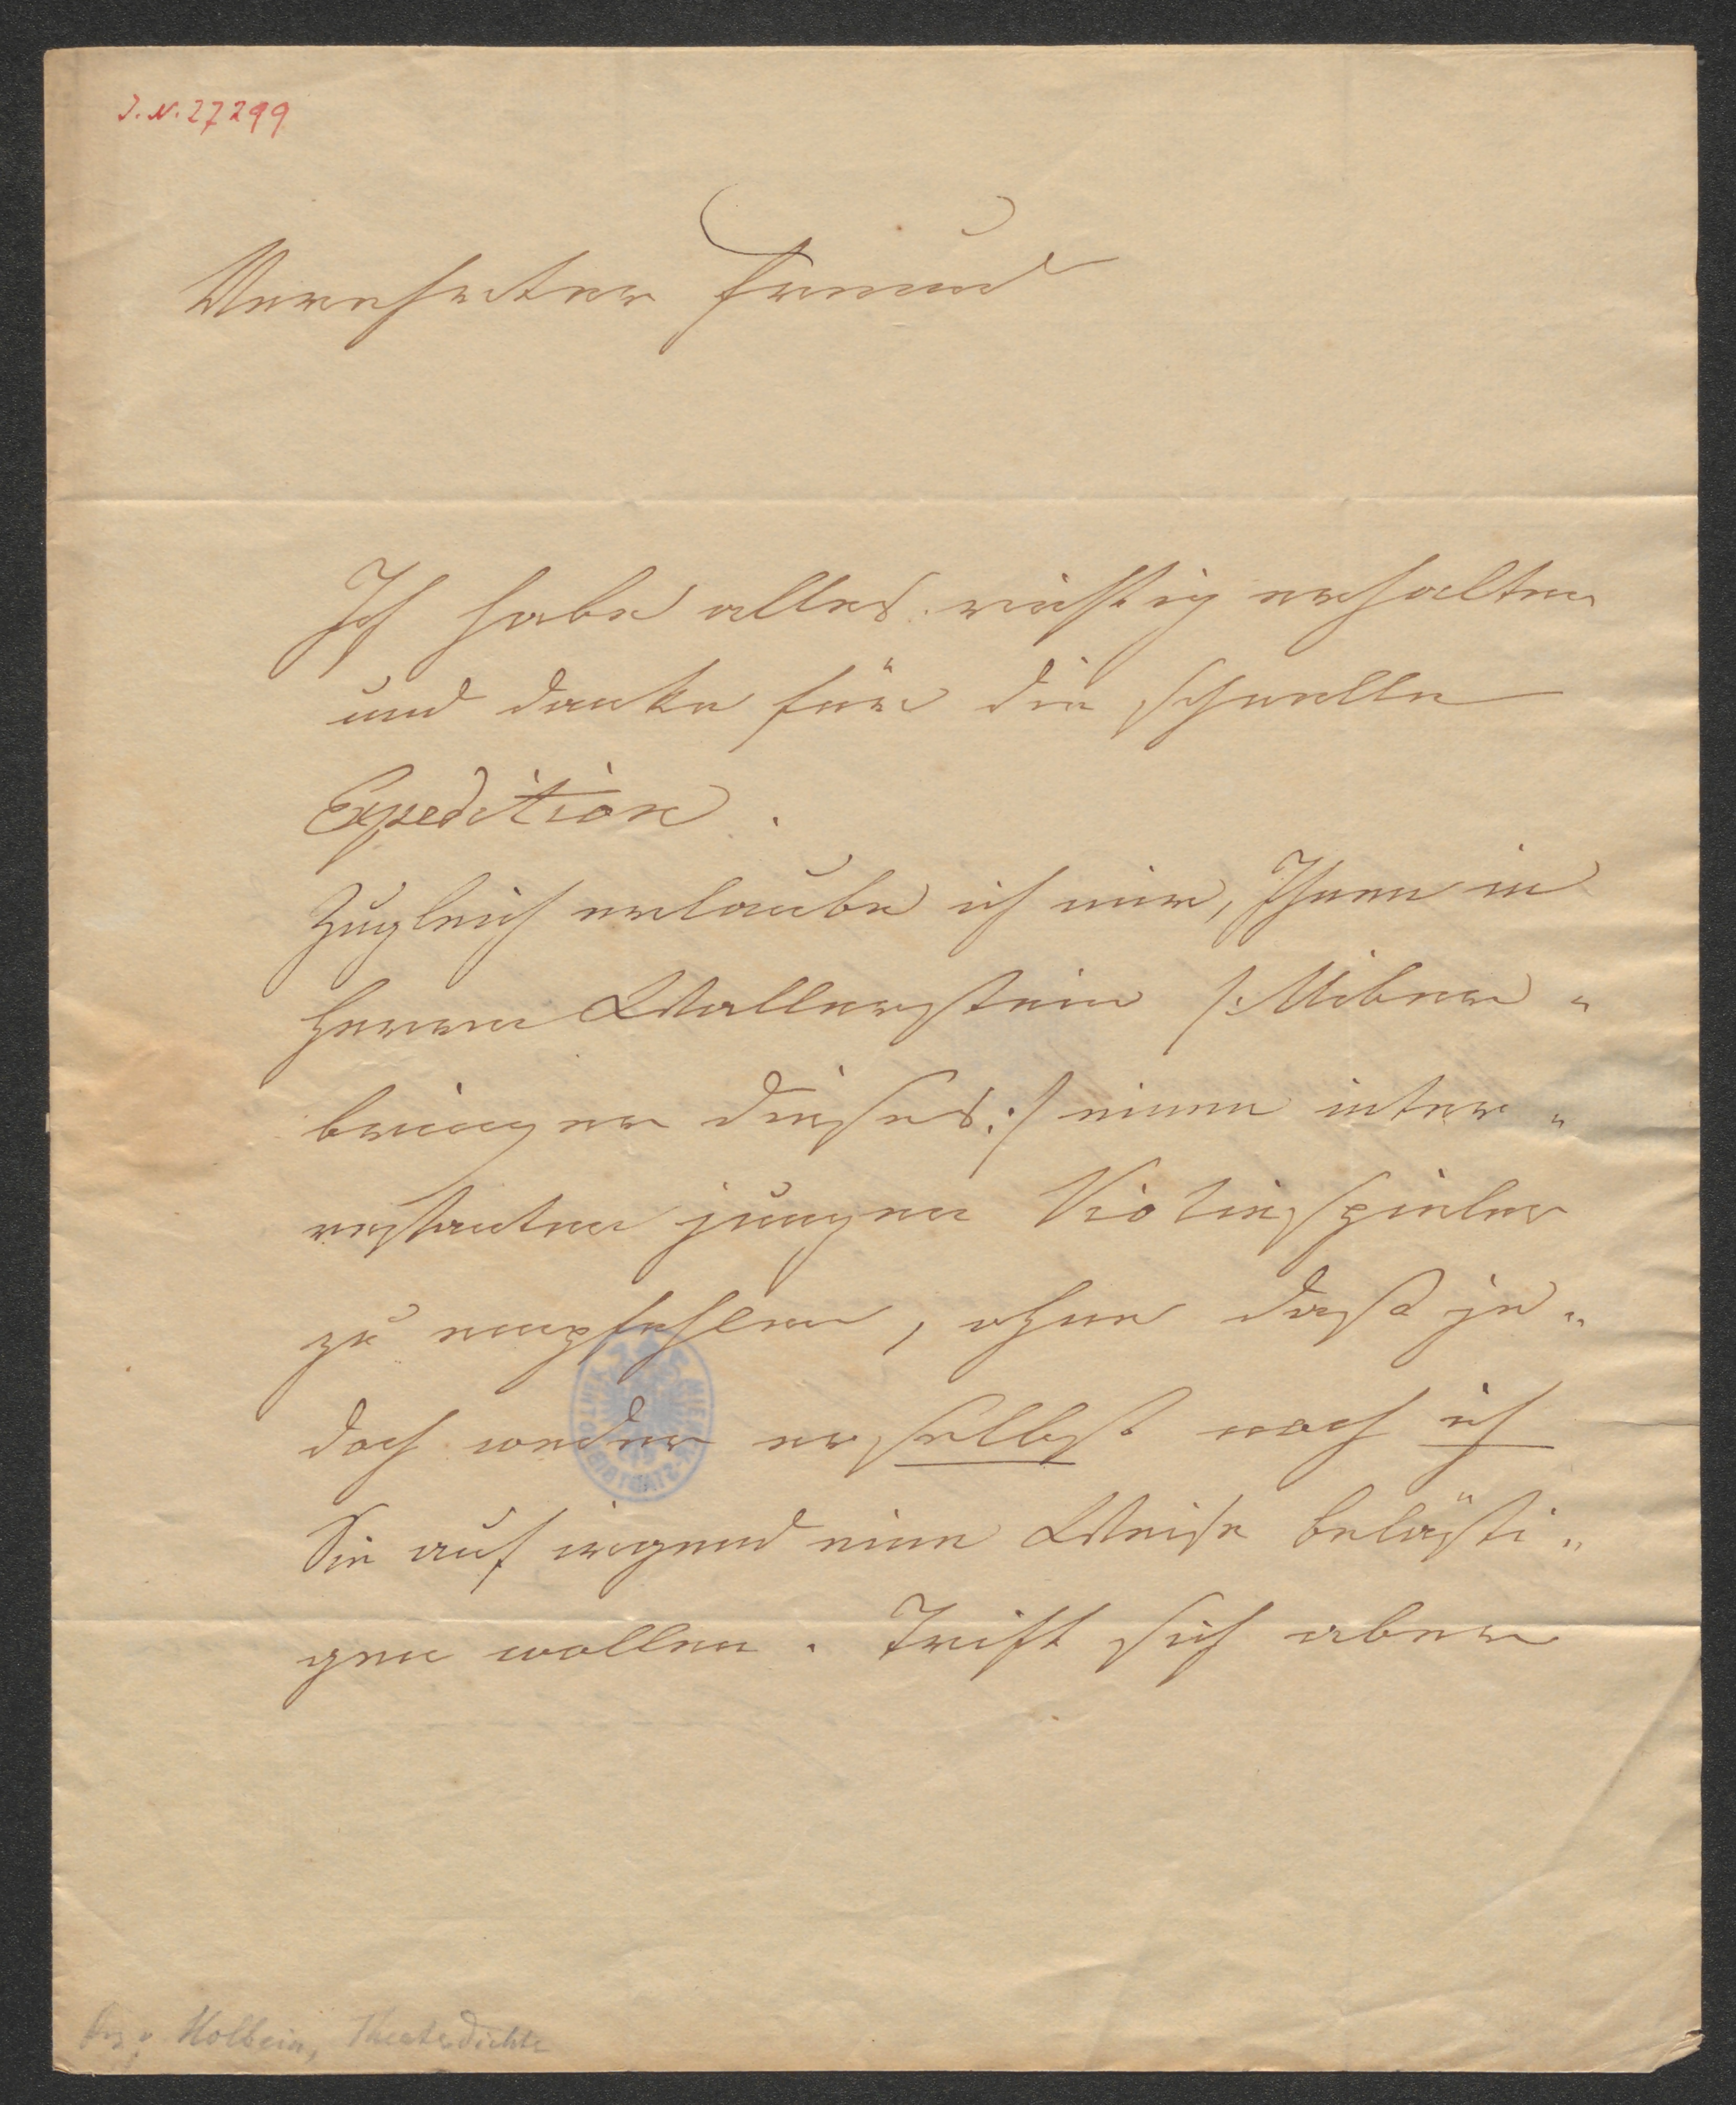 J.N. 27299
Verehrter Freund
Ich habe alles richtig erhalten
und danke für die schnelle
Expedition.
Zugleich erlaube ich mir, Ihnen in
Herrn Wallerstein /: Uiber„
bringer dieses :/ einen inter„
essanten jungen Violinspieler
zu empfehlen, ohne daß je„
doch weder er selbst noch ich
Sie auf irgend eine Weise belästi„
gen wollen. Trift sich aber
Frz. v. Holbein, Theaterdichter